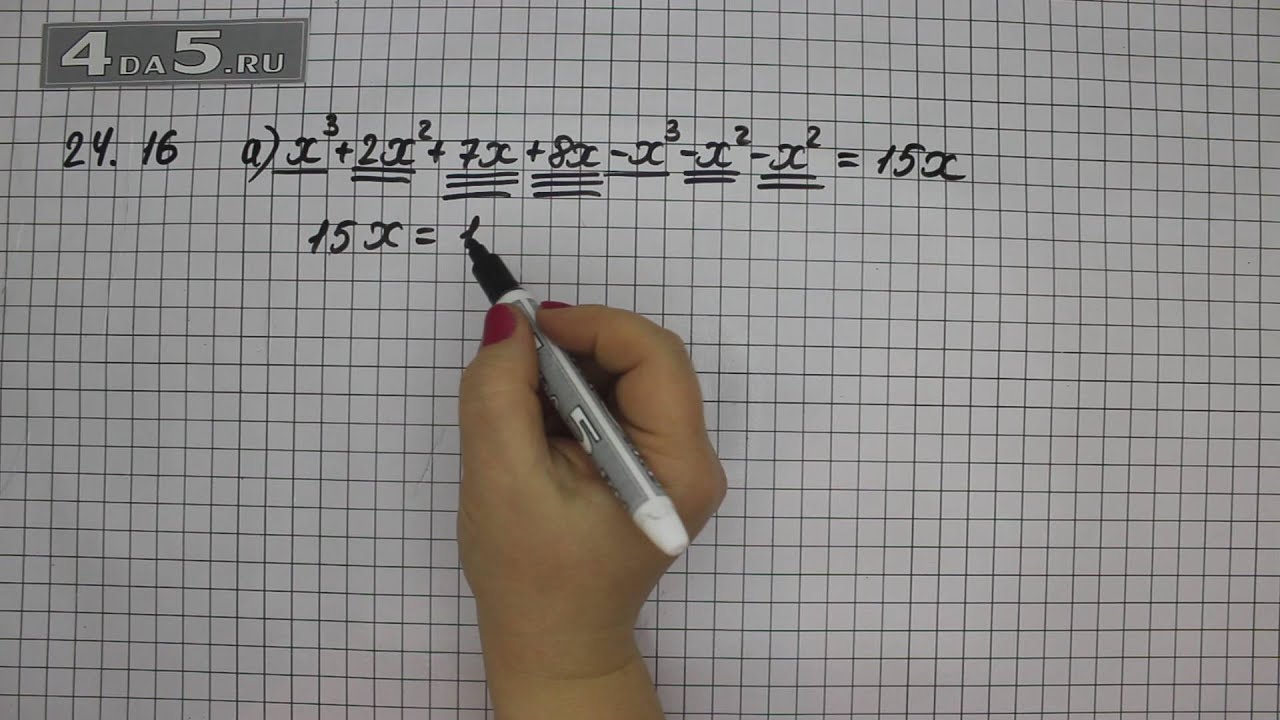 4DA5.RU
24.16 а) x³ + 2x² + 7x + 8x - x³ - x² - x² = 15x
15x = 1
5